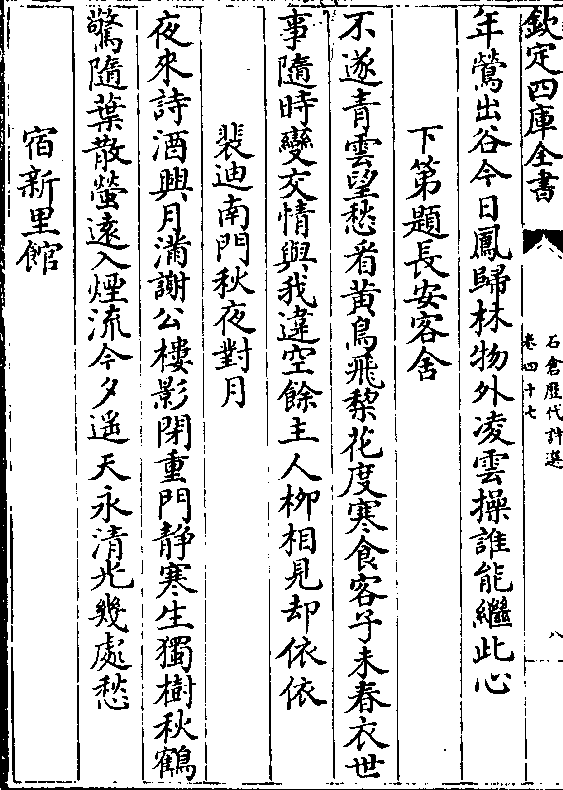 欽定四庫全書
石倉歴代詩選
卷四十七
八
年鶯出谷今日鳳歸林物外凌雲操誰能繼此心
下第題長安客舍
不遂青雲望愁看黄鳥飛棃花度寒食客子未春衣世
事隨時變交情與我違空餘主人柳相見却依依
裴迪南門秋夜對月
夜來詩酒興月滿謝公樓影閉重門静寒生獨樹秋鶴
驚隨葉散螢逺入煙流今夕遥天永清光幾處愁
宿新里館